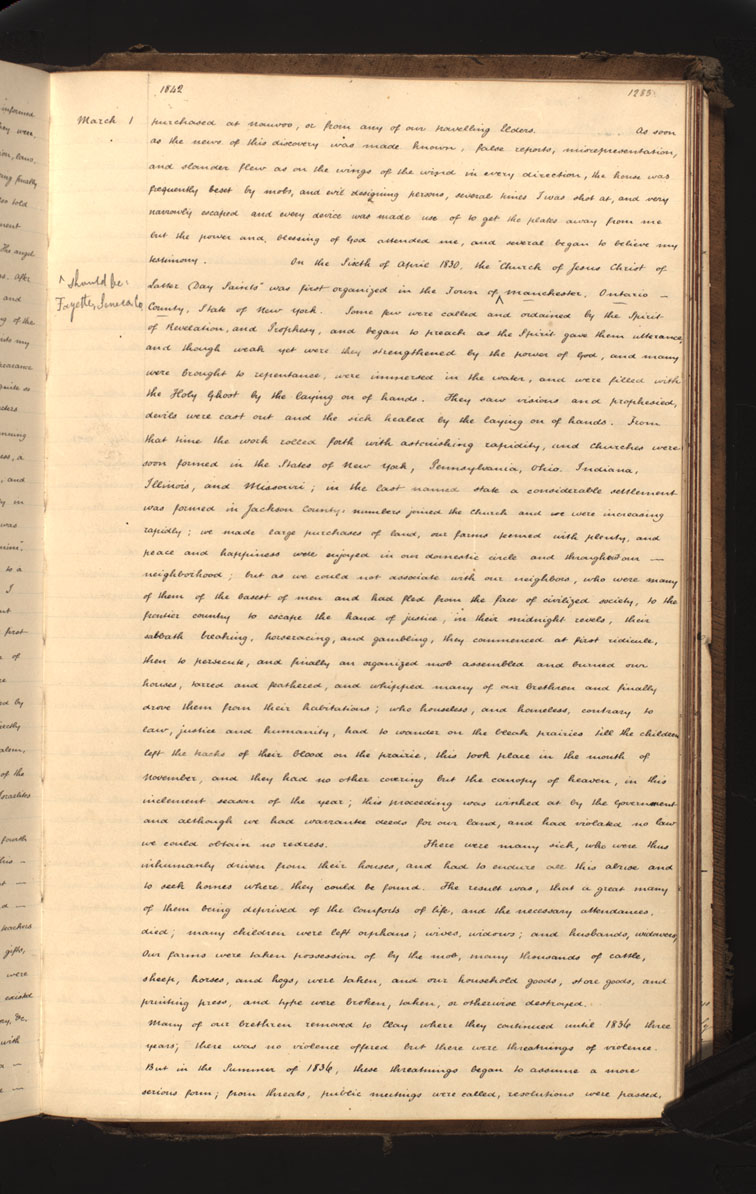 1842
1285
March 1
purchased at nauvoo, or from any of our travelling Elders. As soon
as the news of this discovery was made known, false reports, misrepresentation,
and slander flew as on the wings of the wind in every direction, the house was
frequently beset by mobs, and evil designing persons, several times I was shot at, and very
narrowly escaped and every device was made use of to get the plates away from me
but the power and, blessing of God attended me, and several began to believe my
testimony. On the Sixth of April 1830, the "Church of Jesus Christ of
^ should be:
Latter Day Saints" was first organized in the Town of ^ Manchester, Ontario —
Fayette, Seneca Co
County, State of New York. Some few were called and ordained by the Spirit
of Revelation, and Prophesy, and began to preach as the Spirit gave them utterance,
and though weak yet were they strengthened by the power of God, and many
were brought to repentance, were immersed in the water, and were filled with
the Holy Ghost by the laying on of hands. They saw visions and prophesied,
devils were cast out and the sick healed by the laying on of hands. From
that time the work rolled forth with astonishing rapidity, and Churches were
soon formed in the States of New York, Pennsylvania, Ohio. Indiana,
Illinois, and Missouri; in the last named state a considerable settlement
was formed in Jackson County, numbers joined the Church and we were increasing
rapidly; we made large purchases of land, our farms teemed with plenty, and
peace and happiness were enjoyed in our domestic circle and throughout our —
neighborhood; but as we could not associate with our neighbors, who were many
of them of the basest of men and had fled from the face of civilized society, to the
frontier country to escape the hand of justice, in their midnight revels, their
sabbath breaking, horseracing, and gambling, they commenced at first ridicule,
then to persecute, and finally an organized mob assembled and burned our
houses, tarred and feathered, and whipped many of our brethren and finally
drove them from their habitations; who houseless, and homeless, contrary to
law, justice and humanity, had to wander on the bleak prairies till the children
left the tracks of their blood on the prairie, this took place in the month of
November, and they had no other covering but the canopy of heaven, in this
inclement season of the year; this proceeding was winked at by the Government
and although we had warrantee deeds for our land, and had violated no law
we could obtain no redress. There were many sick, who were thus
inhumanly driven from their houses, and had to endure all this abuse and
to seek homes where they could be found. The result was, that a great many
of them being deprived of the Comforts of life, and the necessary attendances,
died; many children were left orphans; wives, widows; and husbands, widowers,
Our farms were taken possession of by the mob, many thousands of cattle,
sheep, horses, and hogs, were taken, and our household goods, store goods, and
printing press, and type were broken, taken, or otherwise destroyed.
Many of our brethren removed to Clay where they continued until 1836 three
years; there was no violence offered but there were threatnings of violence.
But in the Summer of 1836, these threatnings began to assume a more
serious form; from threats, public meetings were called, resolutions were passed,